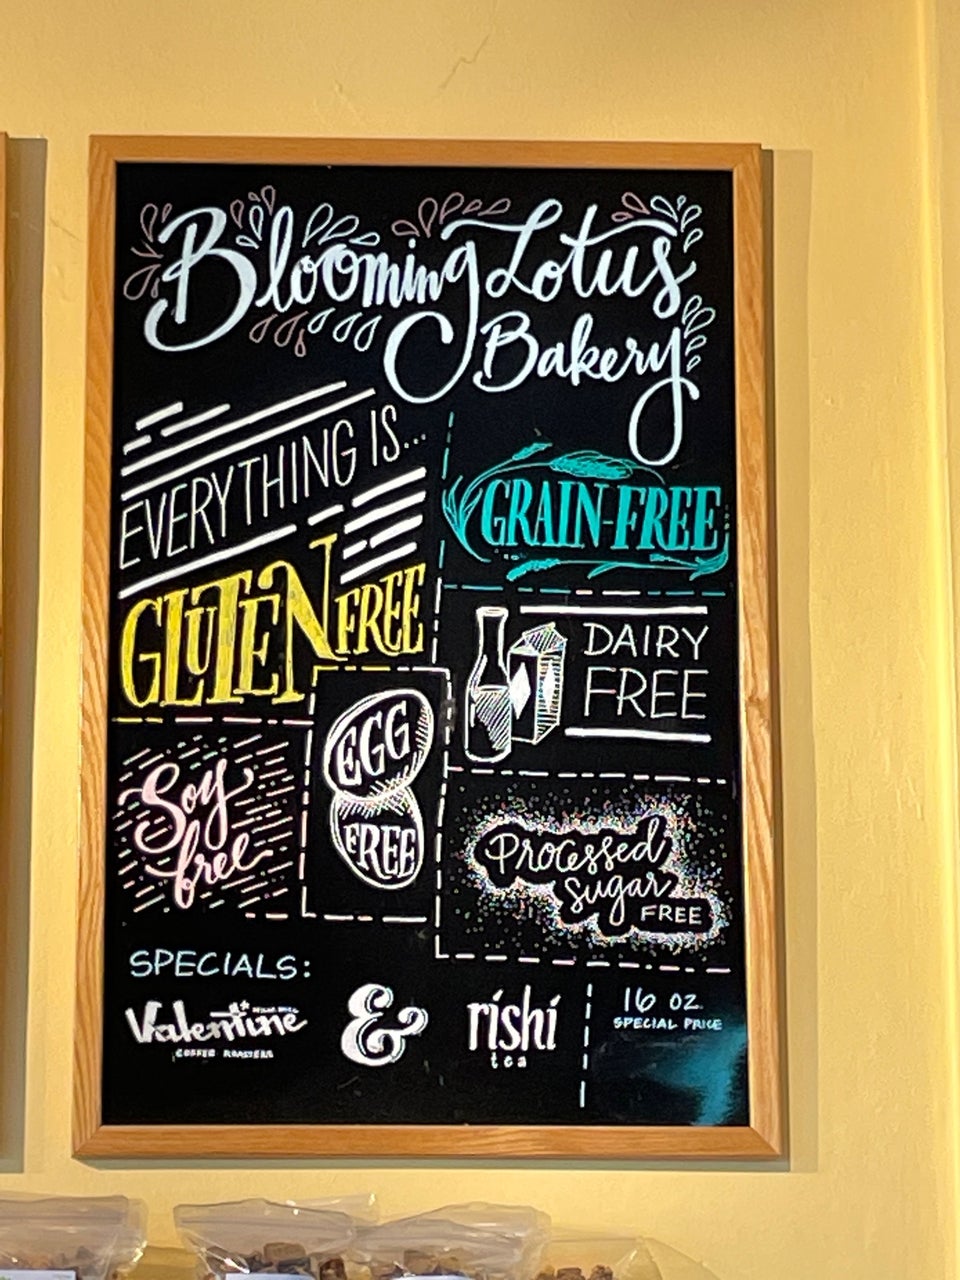 Blooming Lotus
Bakery
EVERYTHING IS...
GLUTEN FREE
GRAIN-FREE
DAIRY
FREE
EGG
FREE
Soy
free
Processed
Sugar
FREE
SPECIALS:
Valentine
COFFEE ROASTERS
&
rishi
tea
16 OZ.
SPECIAL PRICE